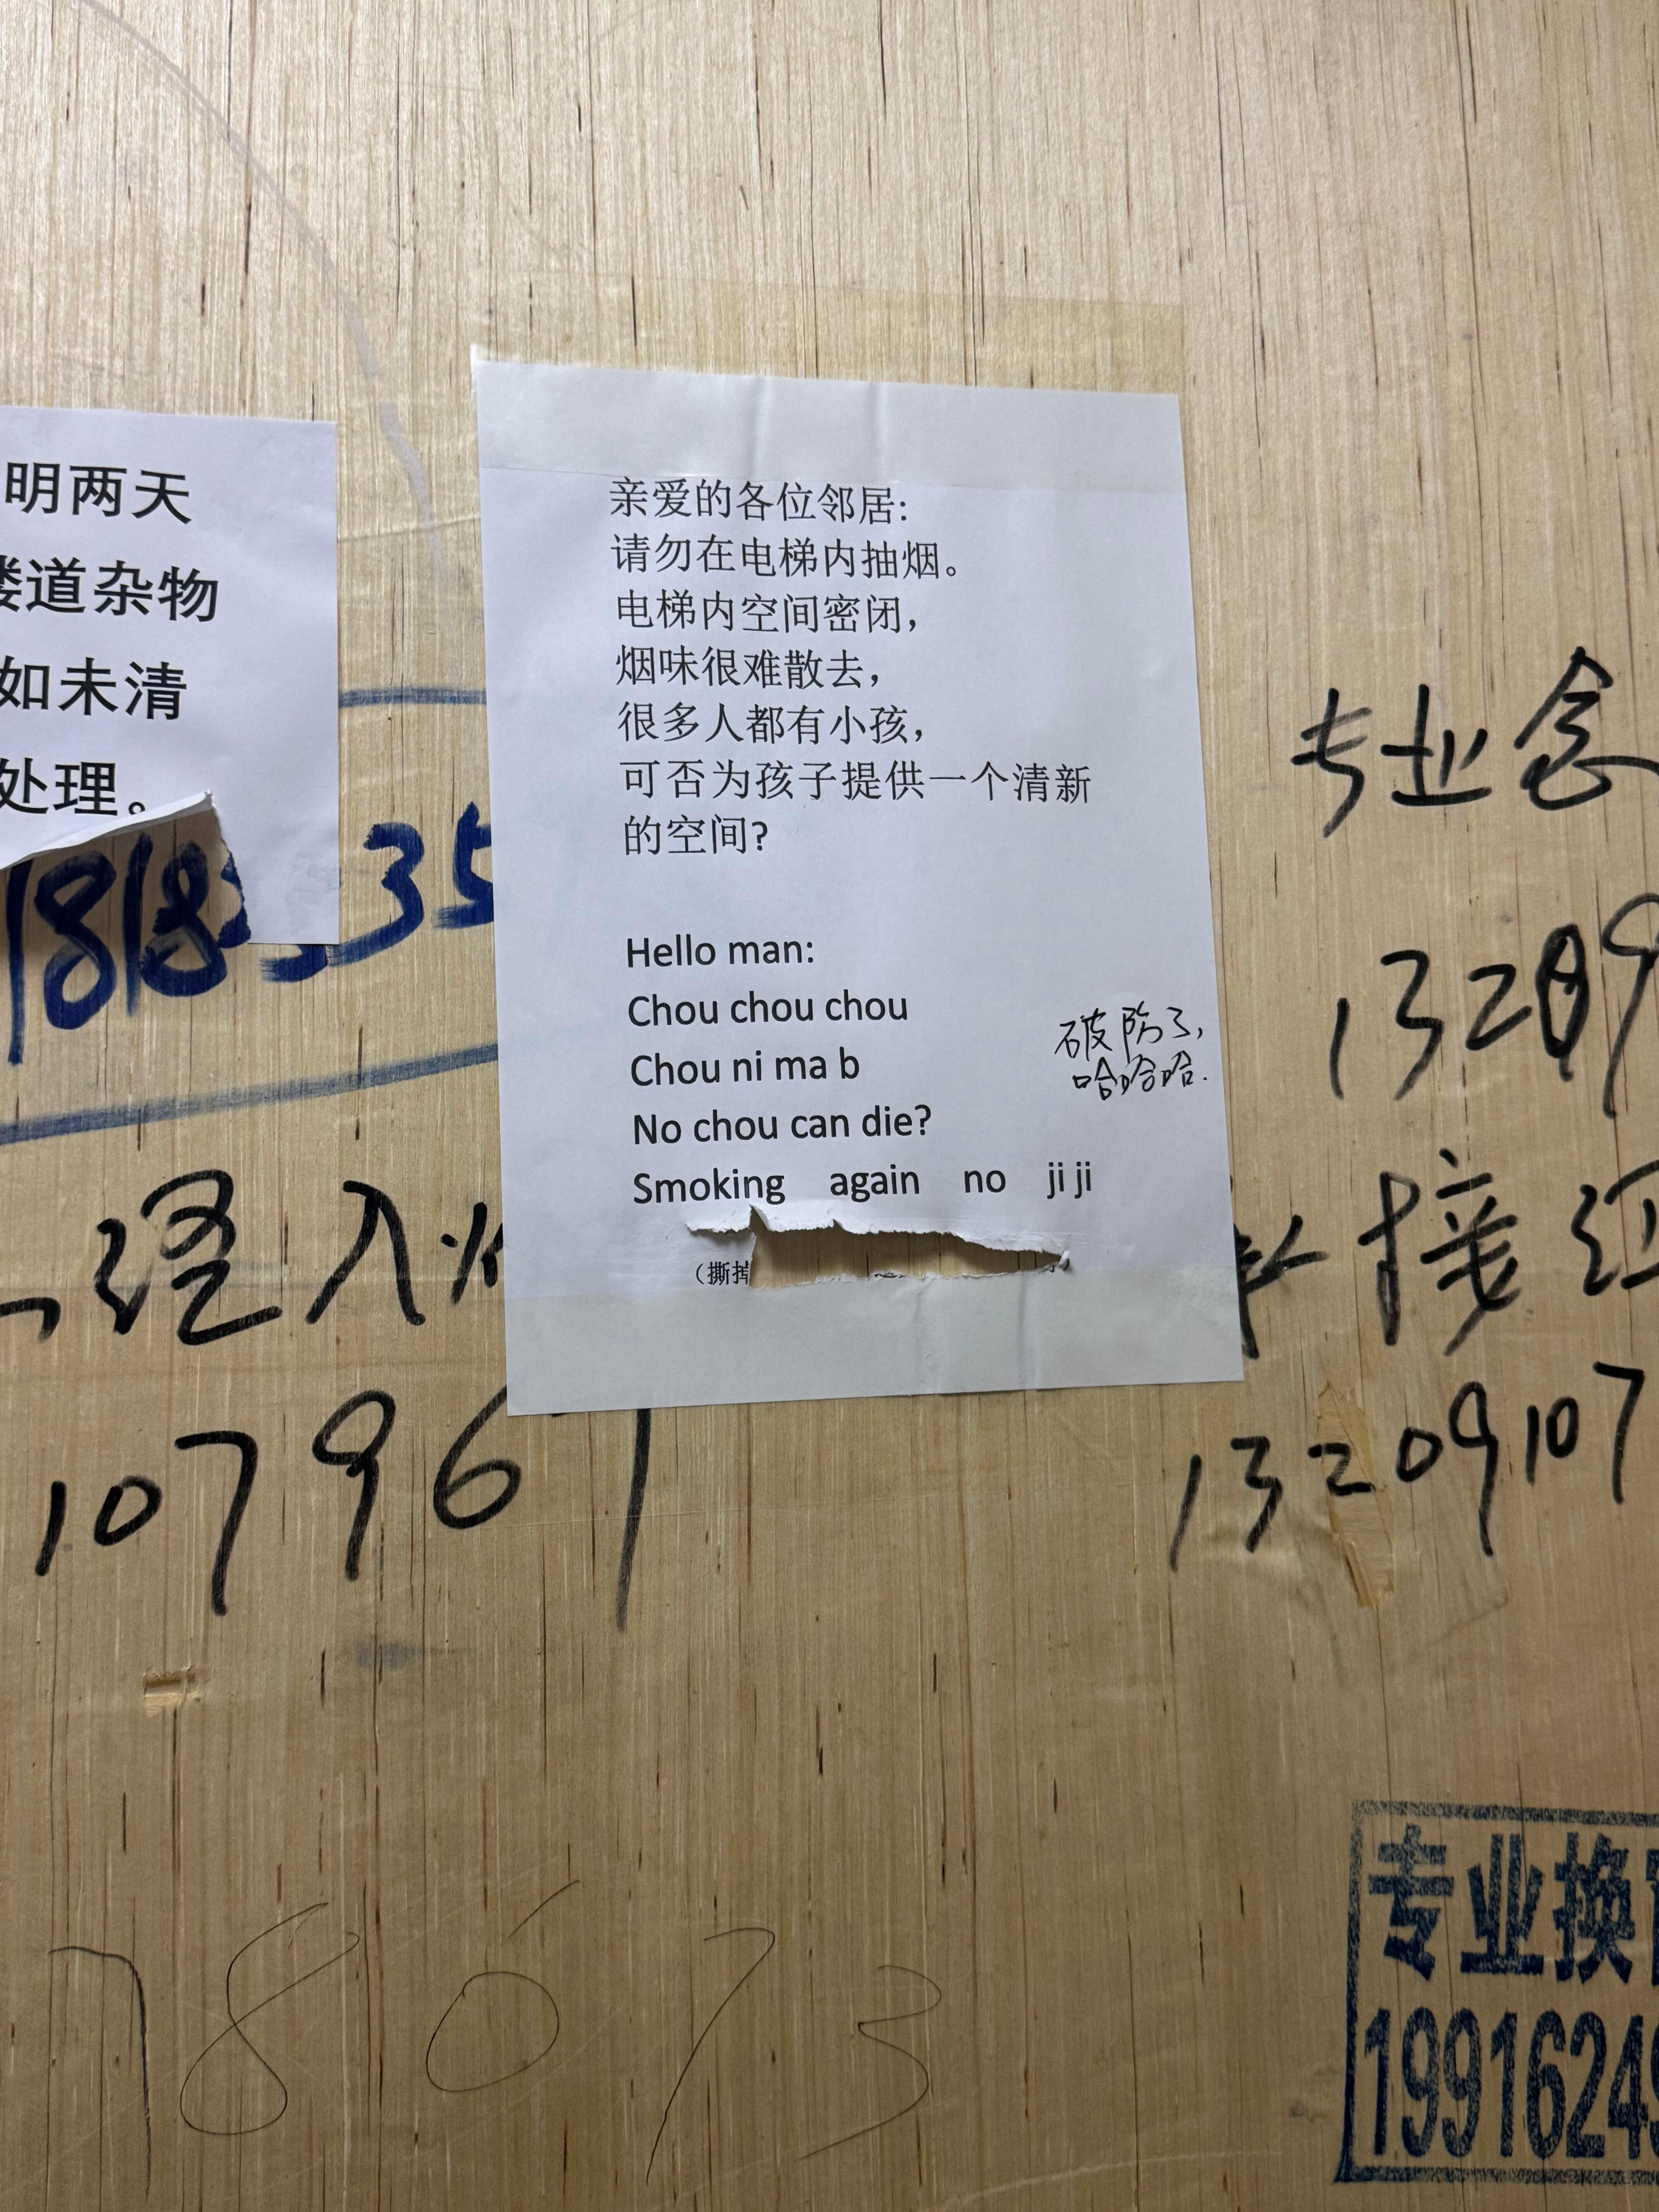 明两天
楼道杂物
如未清
处理。
18183 35
亲爱的各位邻居:
请勿在电梯内抽烟。
电梯内空间密闭，
烟味很难散去，
很多人都有小孩，
可否为孩子提供一个清新
的空间?
Hello man:
Chou chou chou
Chou ni ma b
No chou can die?
Smoking again no ji ji
（撕掉
破防了，
哈哈哈.
专业
13209
接
入
107967
13209107
78073
专业换
1991624